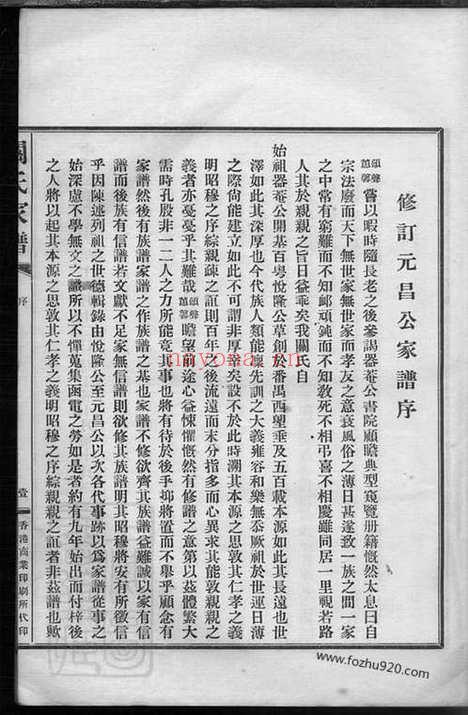 修訂元昌公家譜序
頌聲蕙馨嘗以暇時隨長老之後參謁器菴公書院顧瞻典型窺覽册籍慨然太息曰自
宗法廢而天下無世家無世家而孝友之意衰風俗之薄日甚遂致一族之間一家
之中常有窮難而不知卹頑鈍而不知敎死不相弔喜不相慶雖同居一里視若路
人其於親親之旨日益乖矣我關氏自
始祖器菴公開基百粵悅隆公草創於番禺西望垂及五百載本源如此其長遠也世
澤如此其深厚也今代族人類能廩先訓之大義雍容和樂無忝厥祖於世運日薄
之際尙能建立如此不可謂非厚幸矣設不於此時溯其本源之思敦其仁孝之義
明昭穆之序綜親疎之誼則百年之後流遠而末分指多而心異求其能敦親親之
義者亦戞戞乎其難哉頌聲蕙馨瞻望前途心益悚懼慨然有修譜之意第以茲體繁大
需時孔殷非一二人之力所能竟其事也將有待於後乎抑將置而不舉乎顧念有
家譜然後有族譜家譜之作族譜之基也家譜不修欲齊其族譜益難誠以家有信
譜而後族有信譜若文獻不足家無信譜則欲修其族譜明其昭穆將安有所徵信
乎因陳述列祖之世德輯錄由悅隆公至元昌公以次各代事跡以爲家譜從事之
始深慮不學無文之譏所以不憚蒐集函電之勞如是者約有九年始出而付梓後
之人將以起其本源之思敦其仁孝之義明昭穆之序綜親親之誼者非茲譜也歟
關氏家譜
序
壹
香港商業印刷所代印
nayona.cn
www.fozhu920.com